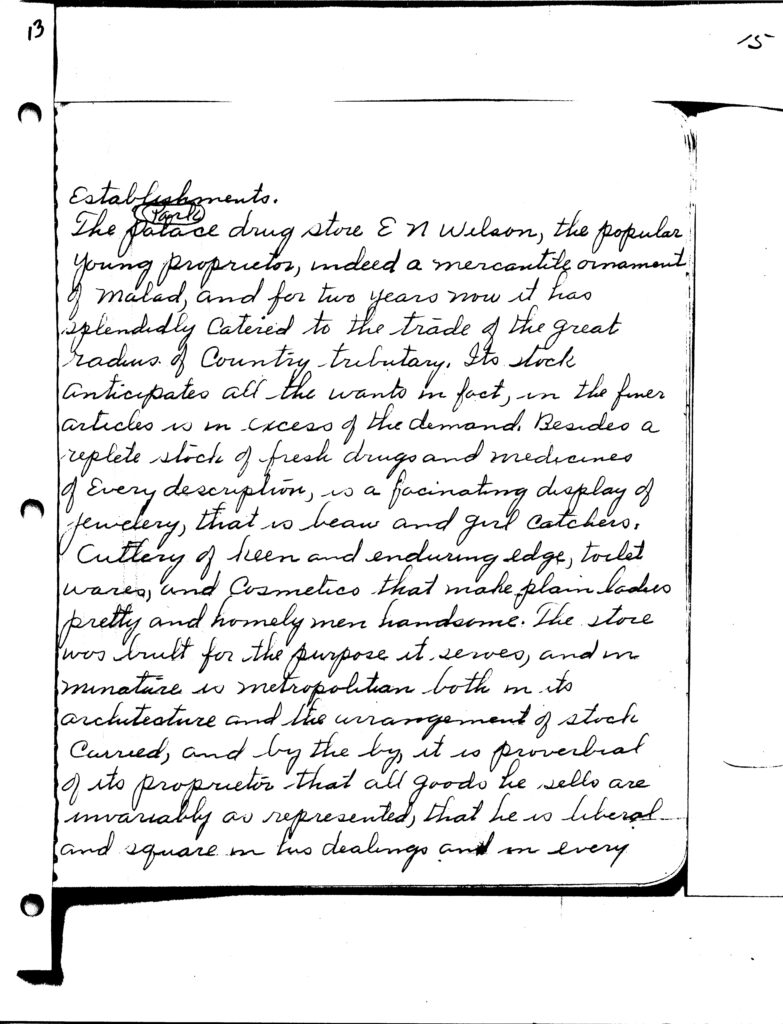 13
15
Establishments.
(Park)
The palace drug store E N Wilson, the popular
young proprietor, indeed a mercantile ornament
of Malad, and for two years now it has
splendedly Catered to the trade of the great
radius of Country tributary. Its stock
anticipates all the wants in fact, in the finer
articles is in excess of the demand. Besides a
replete stock of fresh drugs and medicines
of Every description, is a facinating display of
jewelery, that is beau and girl catchers.
Cuttlery of keen and enduring edge, toilet
wares, and Cosmetics that make plain ladies
pretty and homely men handsome. The store
was built for the purpose it serves, and in
minature is metropolitian both in its
architesture and the arrangement of stock
Carried, and by the by, it is proverbial
of its proprietor that all goods he sells are
invariably as represented, that he is liberal
and square in his dealings and in every